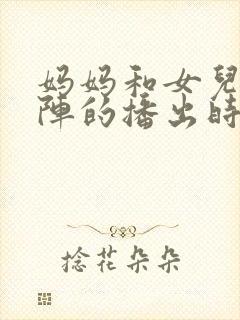 妈妈和女兒
陣的播出時
捻花朵朵